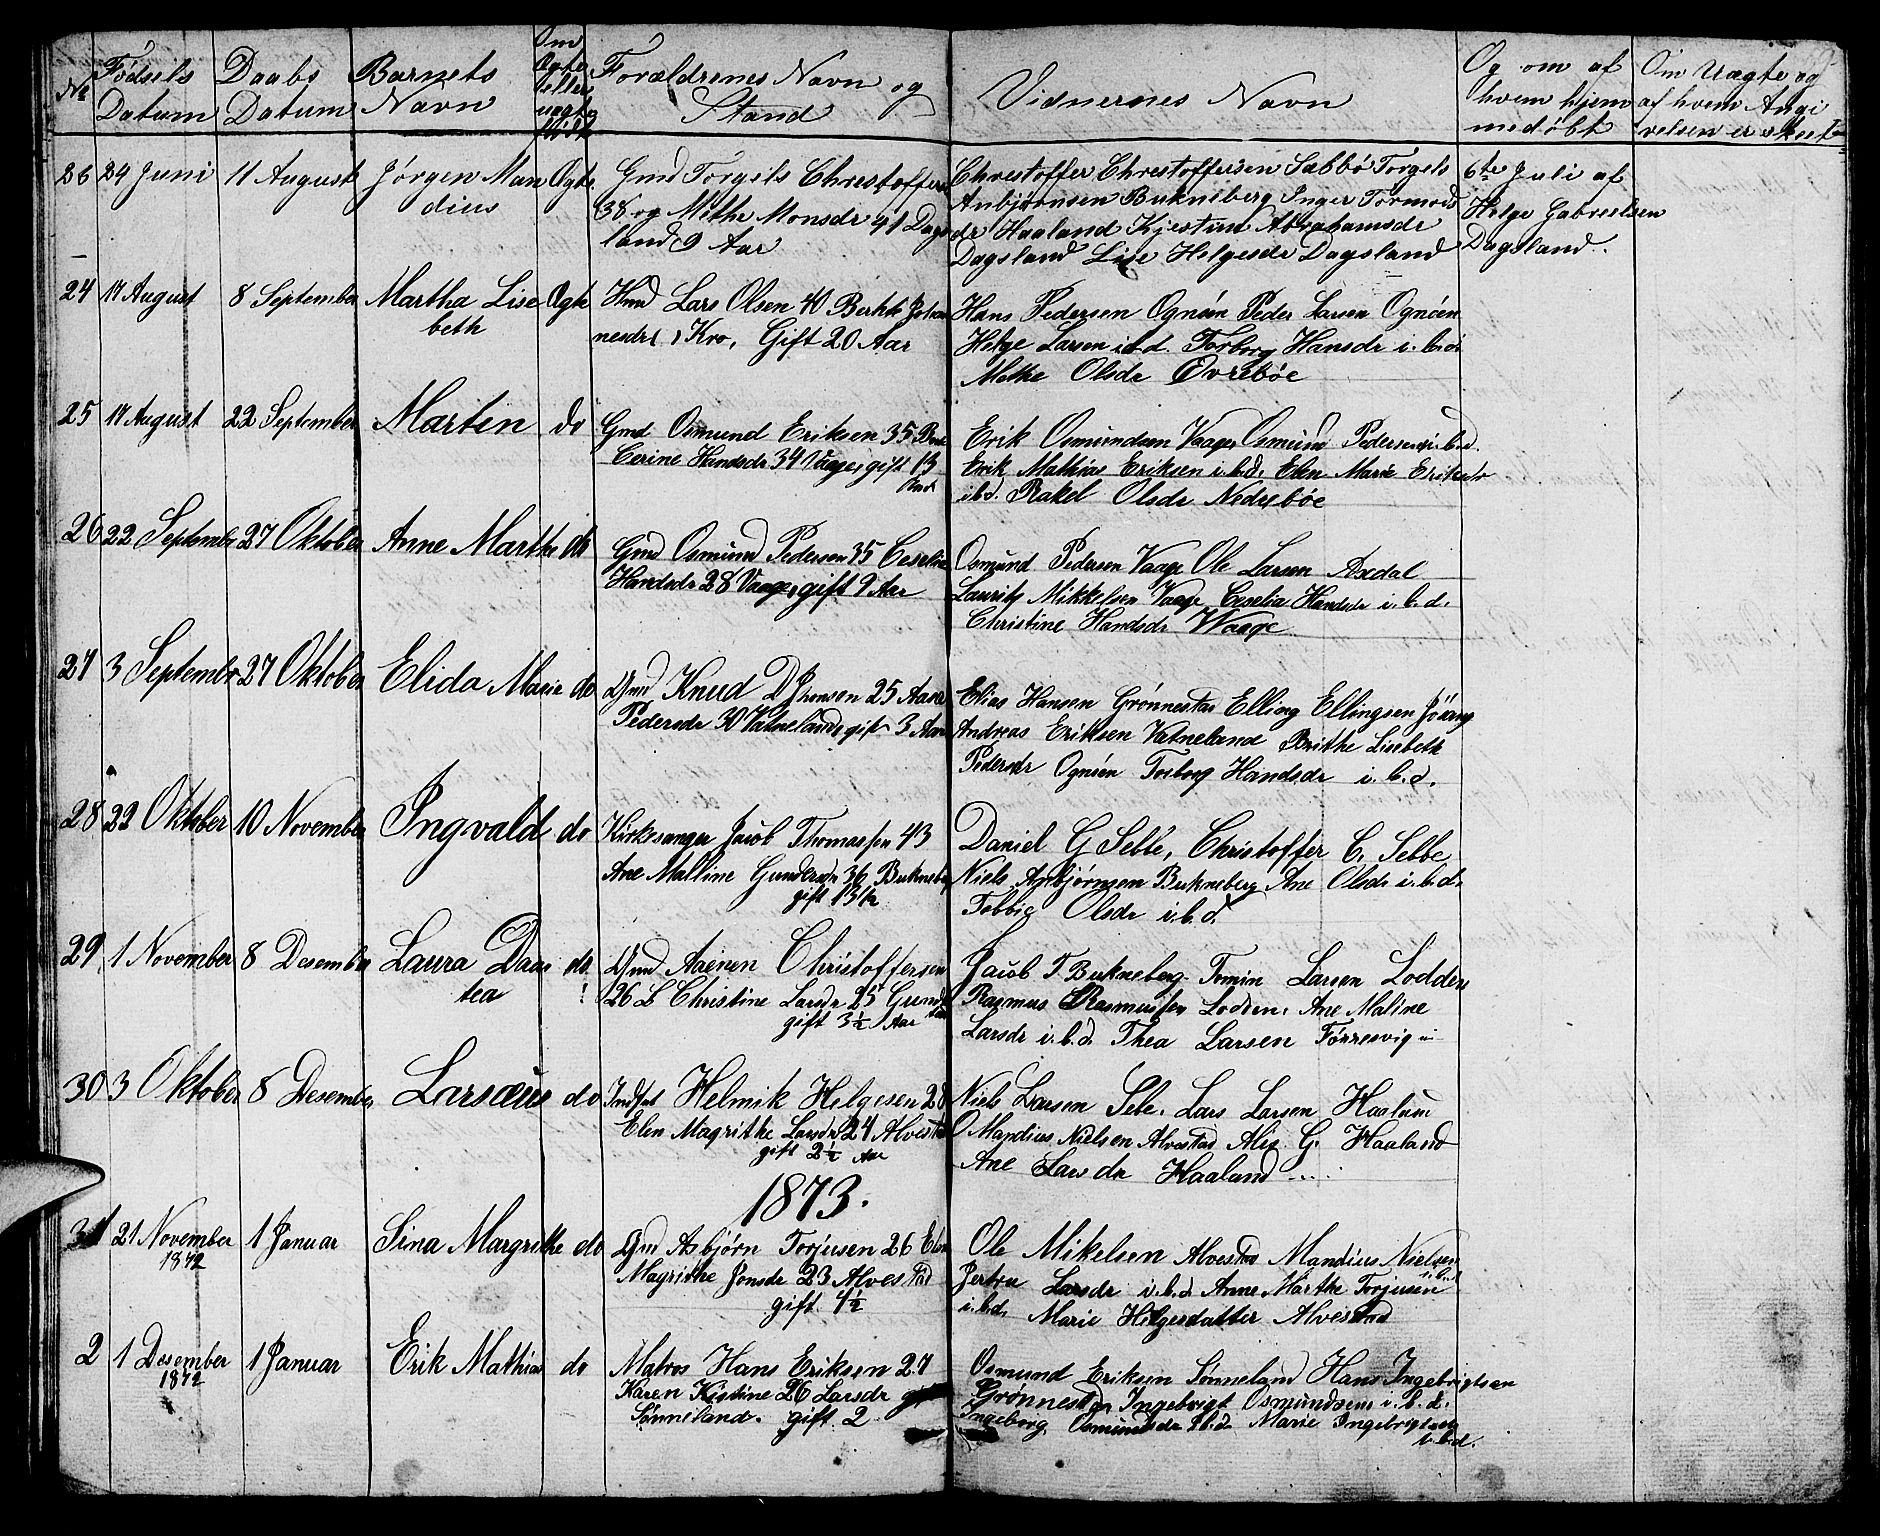 No Fødsels Datum Daabs Datum Barnets Navn Om Ægte eller uægte født Forældrenes Navn og Stand Vidnernes Navn Og om af hvem hjemmedøbt Om Uægte og af hvem Angivelsen er skeet
26 29 Juni 11 August Jørgen Man Ægte Gmd Torgils Chrestoffers Chrestoffer Chrestoffersen Sæbbø Torgels 6te Juli af
dius 38 og Mithe Monsdr 41 Dags Anbjørnsen Bukneberg Inger Tormods Helge Gabreelsen
land 9 Aar dr Haaland Kjestine Abrahamsdr Dagsland.
Dagsland Lise Helgesdr Dagsland
24 17 August 8 September Martha Lise Ægte Hmd Lars Olsen 40 Berthe Johan Hans Pedersen Ognøen Peder Larsen Ognøen
beth nesdr Kro, Gift 20 Aar Helge Larsen ibd. Torborg Hansdr i.b.d
Methe Olsdr Øvrebøe
25 17 August 22 September Marten do Gmd Osmund Eriksen 35 Erik Osmundsen Vaage Osmund Pedersen i.b.d.
Cerine Handsdr 34 Vaage, gift 13 Erik Mathias Eriksen i.b.d. Elen Marie Eriksdr
i.b.d. Rakel Olsdr Nedrebøe
26 22 September 27 Oktober Anne Marthe do Gmd Osmund Pedersen 35 Ceselia Osmund Pedersen Vaage Ole Larsen Axdal
Handsdr 28 Vaage, gift 9 Aar Laurits Mikkelsen Vaage Ceselia Handsdr i.b.d.
Christine Handsdr Waage
27 3 September 27 Oktober Elida Marie do Gmd Knud D Jhonsen 25 Elias Hansen Grønnestad Elling Ellingsen
Pedersdr 30 Vatneland, gift 3 Aar Andreas Eriksen Vatneland Brithe Lisebeth
Pedersdr Ognøen Torborg Handsdr i.b.d.
28 22 Oktober 10 November Ingvald do Kirkesanger Jacob Thomassen 43 Daniel G Sebbe, Christoffer C. Sebbe
Ane Malline Gundersdr 36 Bukneberg Niels Asbjørnsen Bukneberg Ane Olsdr i.b.d.
gift 13 Aar Tobbie Olsdr i.b.d.
29 1 November 8 Desember Laura Daar do. Gmd Aanen Christoffersen Jacob T. Bukneberg Tomin Larsen Lodden
tea 26 Christine Larsdr 25 Rasmus Rasmussen Lodden. Ane Maline
gift 3½ Aar Larsdr i.b.d. Thea Larsen Førresvig
30 3 Oktober 8 Desember Larsæus do Indst Helmik Helgesen 28 Niels Larsen Sebe. Lars Larsen Haaland
Elen Magrithe Larsdr 24 Alvestad Mandius Nielsen Alvestad Alis G. Haaland
gift 2½ Aar Ane Larsdr Haaland ...
1873.
31 21 November 1 Januar Sina Margrithe do Gmd Asbjørn Torjusen 26 Elen Ole Mikelsen Alvestad Mandius Nielsen
1872 Magrithe Jonsdr 23 Alvestad Jertru Larsdr i.b.d Anne Marthe Torjusen i.b.d
gift 4½ i.b.d. Marie Helgesdatter Alvestad
2 1 Desember 1 Januar Erik Mathias do Matros Hans Eriksen 27 Osmund Eriksen Sønneland Hans Ingebrigtsen
1872 Karen Kistine 26 Larsdr Grønnestad Ingebrigt Osmundsen i.b.d.
Sønneland. gift 2 Ingeborg Osmundsdr ibd Marie Ingebrigtsen
i.b.d.